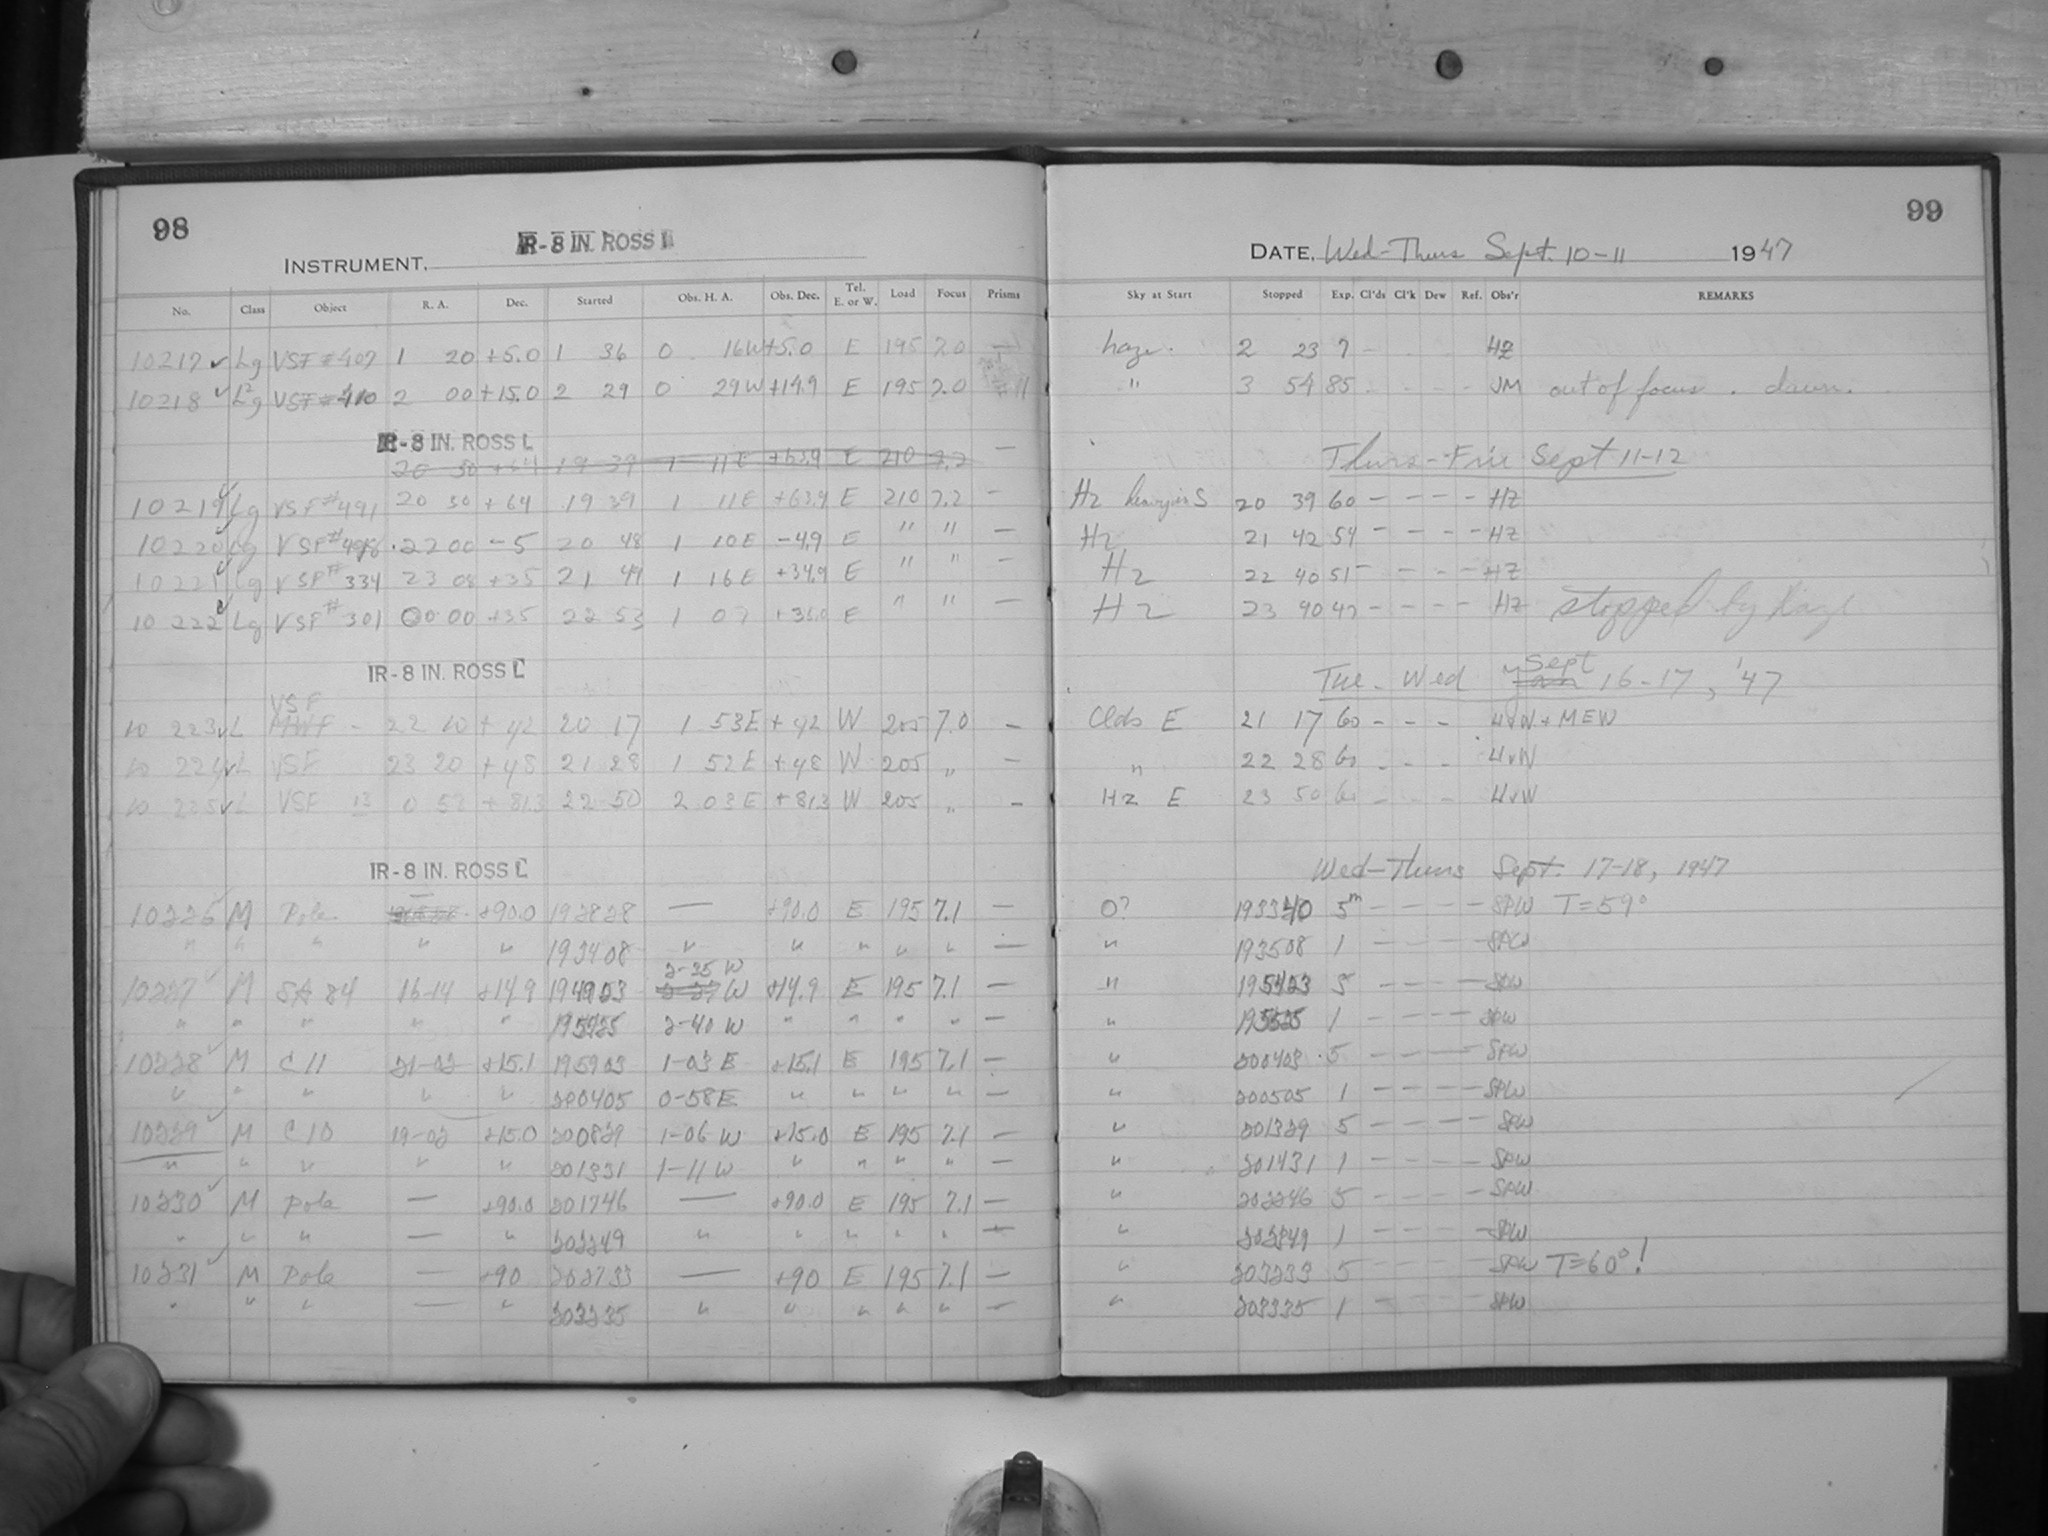 98
IR-8 IN. ROSS L
INSTRUMENT,
No. Class Object R. A. Dec. Started Obs. H. A. Obs. Dec. Tel. E. or W. Load Focus Prisms
10217 ✓ Lg VSF #407 1 20 +5.0 1 36 0 16W +5.0 E 195 7.0 —
10218 ✓ Lg VSF #410 2 00 +15.0 2 29 0 29W +14.9 E 195 7.0
IR-8 IN. ROSS L
20 50 +64 19 39 1 11E +63.9 E 210 7.2 —
10219 Lg VSF #491 20 50 +64 19 39 1 11E +63.9 E 210 7.2 —
10220 Lg VSF 22 00 -5 20 48 1 10E -4.9 E " " —
10221 Lg VSF #334 23 08 +35 21 49 1 16E +34.9 E " " —
10222 Lg VSF #301 00 00 +35 22 53 1 07 +35.0 E " " —
IR-8 IN. ROSS L
VSF
10 223 ✓ L 22 10 +42 20 17 1 53E +42 W 205 7.0 —
10 224 ✓ L VSF 23 20 +48 21 28 1 52E +48 W 205 " —
10 225 ✓ L VSF 13 0 52 +81.3 22 50 2 03E +81.3 W 205 " —
IR-8 IN. ROSS L
10226 M Pole +90.0 192828 — +90.0 E 195 7.1 —
" " " " " 193408 " " " " " —
2-35 W
10227 ✓ M SA 84 16-14 +14.9 194923 W +14.9 E 195 7.1 —
" " " " " 195425 2-40 W " " " " —
10228 ✓ M C 11 21-02 +15.1 195903 1-03 E +15.1 E 195 7.1 —
" " " " " 200405 0-58E " " " " —
10229 ✓ M C 10 19-02 +15.0 200829 1-06 W +15.0 E 195 7.1 —
" " " " " 201331 1-11 W " " " " —
10230 ✓ M Pole — +90.0 201746 — +90.0 E 195 7.1 —
" " " — " 202249 " " " " " —
10231 ✓ M Pole — +90 202733 — +90 E 195 7.1 —
" " " — " 203235 " " " " " —
99
DATE, Wed-Thurs Sept. 10-11 1947
Sky at Start Stopped Exp. Cl'ds Cl'k Dew Ref. Obs'r REMARKS
haze. 2 23 7 - HZ
" 3 54 85 - - - - JM out of focus. dawn.
Thurs-Fri Sept 11-12
Hz S 20 39 60 - - - - HZ
Hz 21 42 54 - - - - HZ
Hz 22 40 51 - - - - HZ
Hz 23 40 47 - - - - HZ stopped by Haze
Tue-Wed Sept 16-17, '47
Clds E 21 17 60 - - - HvW + MEW
" 22 28 60 - - - HvW
Hz E 23 50 60 - - - HvW
Wed-Thurs Sept. 17-18, 1947
0? 193340 5m - - - - SPW T=59°
" 193508 1 - - - - SPW
" 195423 5 - - - - SPW
" 195525 1 - - - - SPW
" 200403 5 - - - - SPW
" 200505 1 - - - - SPW
" 201329 5 - - - - SPW
" 201431 1 - - - - SPW
" 202246 5 - - - - SPW
" 202349 1 - - - - SPW
" 203233 5 - - - - SPW T=60°!
" 203335 1 - - - - SPW